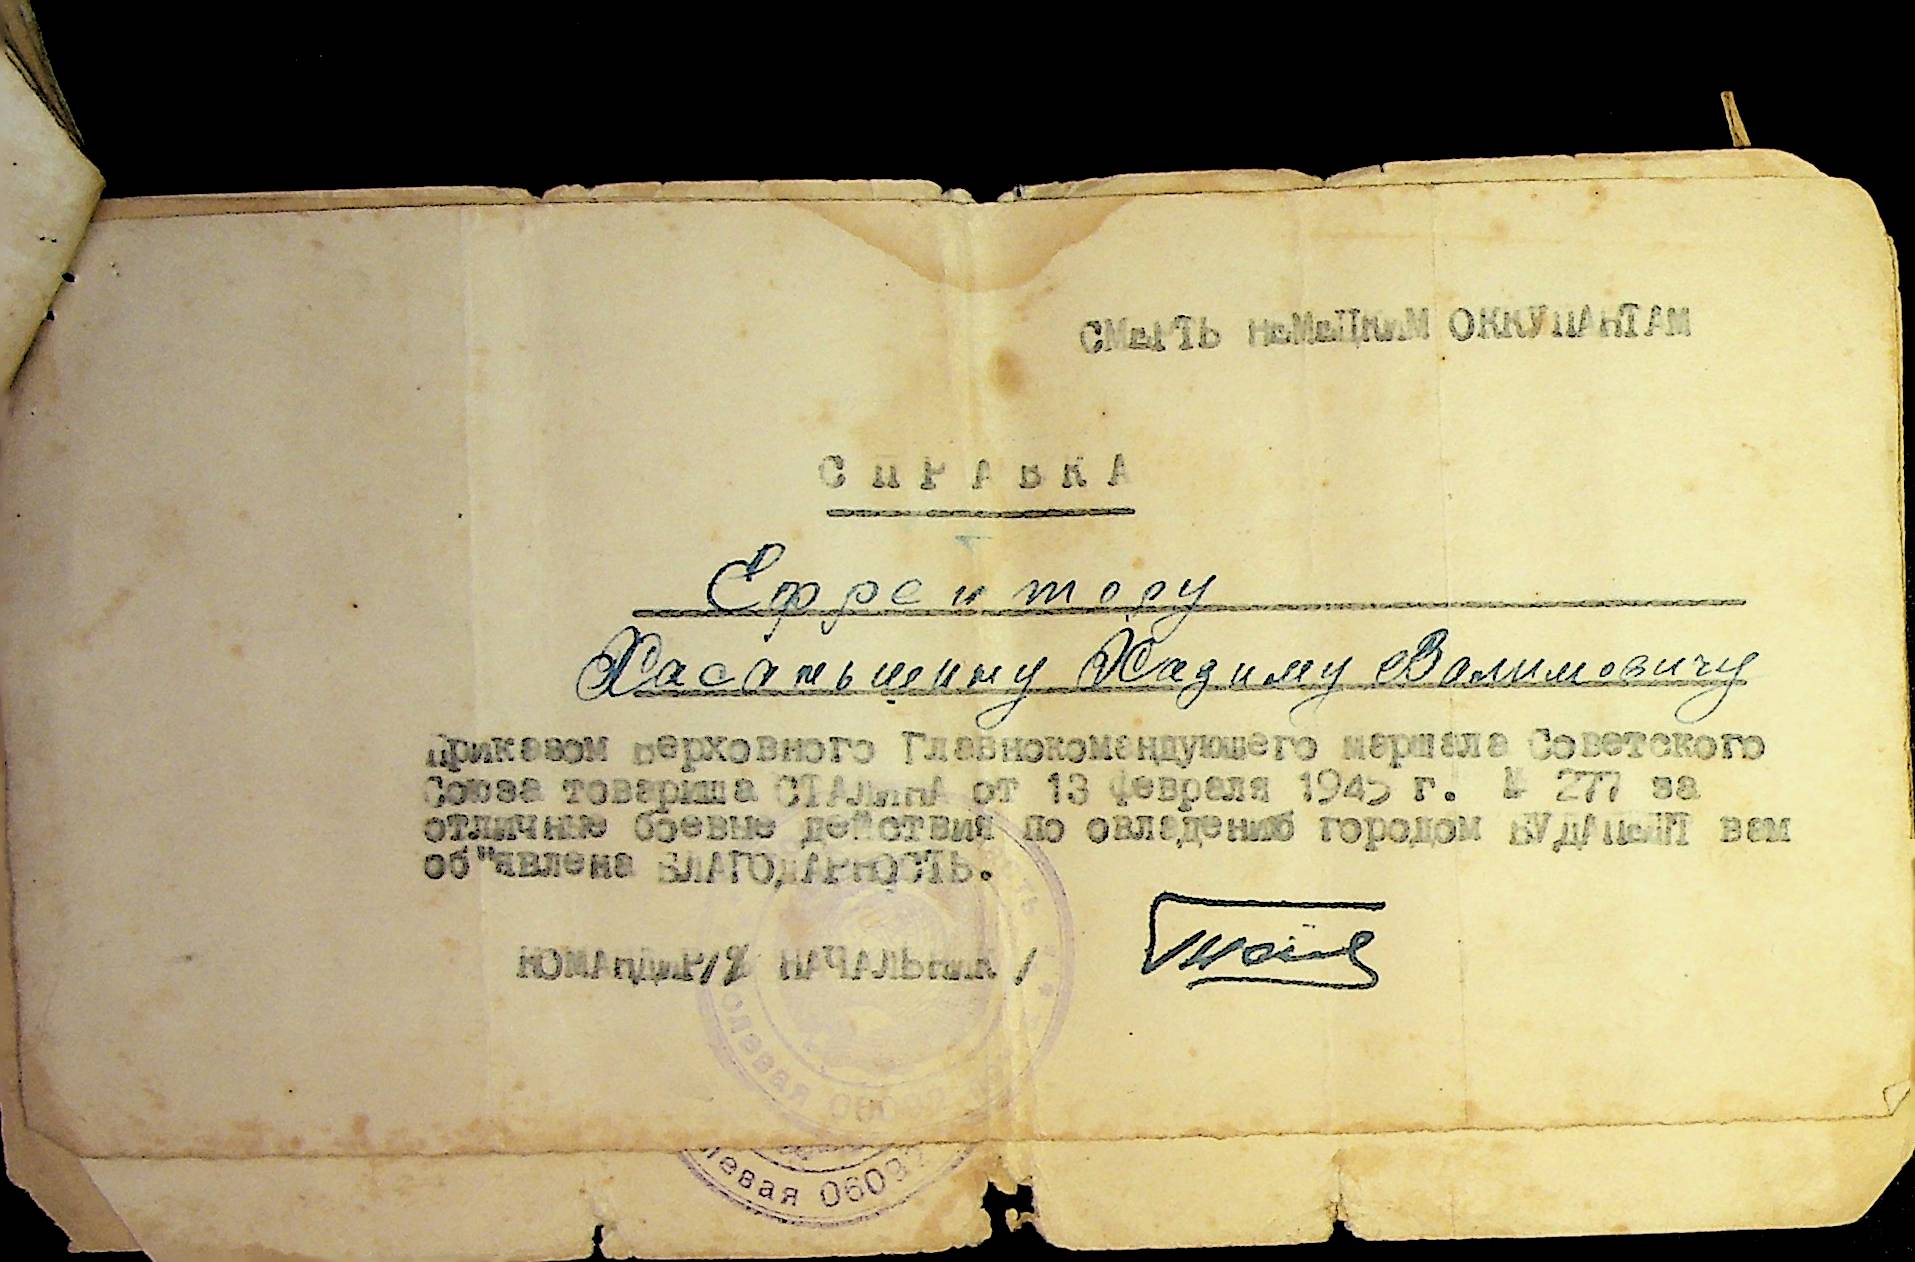 СМЕРТЬ НЕМЕЦКИМ ОККУПАНТАМ
СПРАВКА
Ефрейтору
Хасаньшину Хадиму Валимовичу
Приказом Верховного Главнокомандующего маршала Советского
Союза товарища СТАЛИНА от 13 февраля 1945 г. № 277 за
отличные боевые действия по овладению городом БУДАПЕШТ вам
об"явлена БЛАГОДАРНОСТЬ.
КОМАНДИР/ НАЧАЛЬНИК /
левая 0603
левая 06037